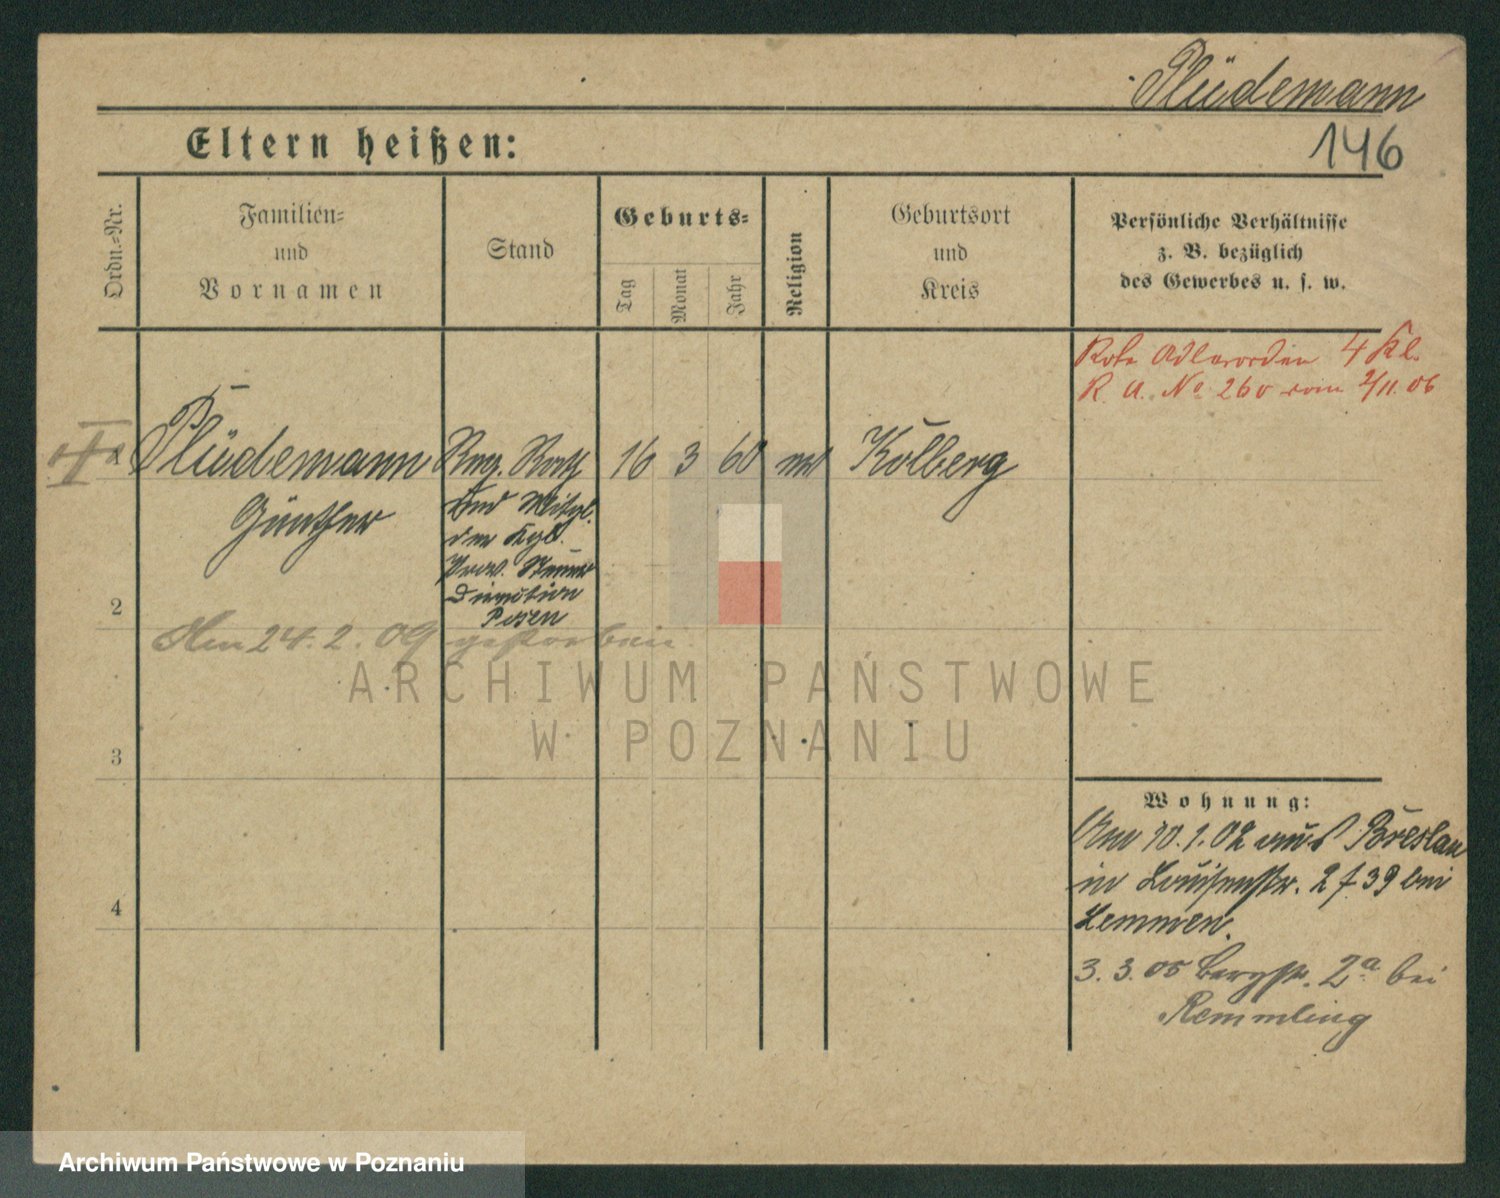 Plüdemann
Eltern heißen:
146
Ordn.=Nr.
Familien=
und
Vornamen
Stand
Geburts=
Tag
Monat
Jahr
Religion
Geburtsort
und
Kreis
Persönliche Verhältnisse
z. B. bezüglich
des Gewerbes u. s. w.
Rote Adlerorden 4 Kl.
R. A. No. 260 vom 2/11. 06
1 Plüdemann Reg. Rath 16 3 60 Kolberg
Günther
und Mitgl.
der Kgl.
Prov. Steuer
Direction
Posen
2
Am 24. 2. 09 gestorben
3
4
Wohnung:
Am 10. 1. 02 aus Breslau
in Louisenstr. 2 f. 39 bei
Lemmen.
3. 3. 05 Bergstr. 2a bei
Remmling
ARCHIWUM PAŃSTWOWE
W POZNANIU
Archiwum Państwowe w Poznaniu